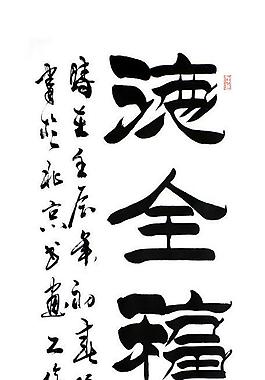 德全福
時在壬辰年初春
書於北京書畫工作